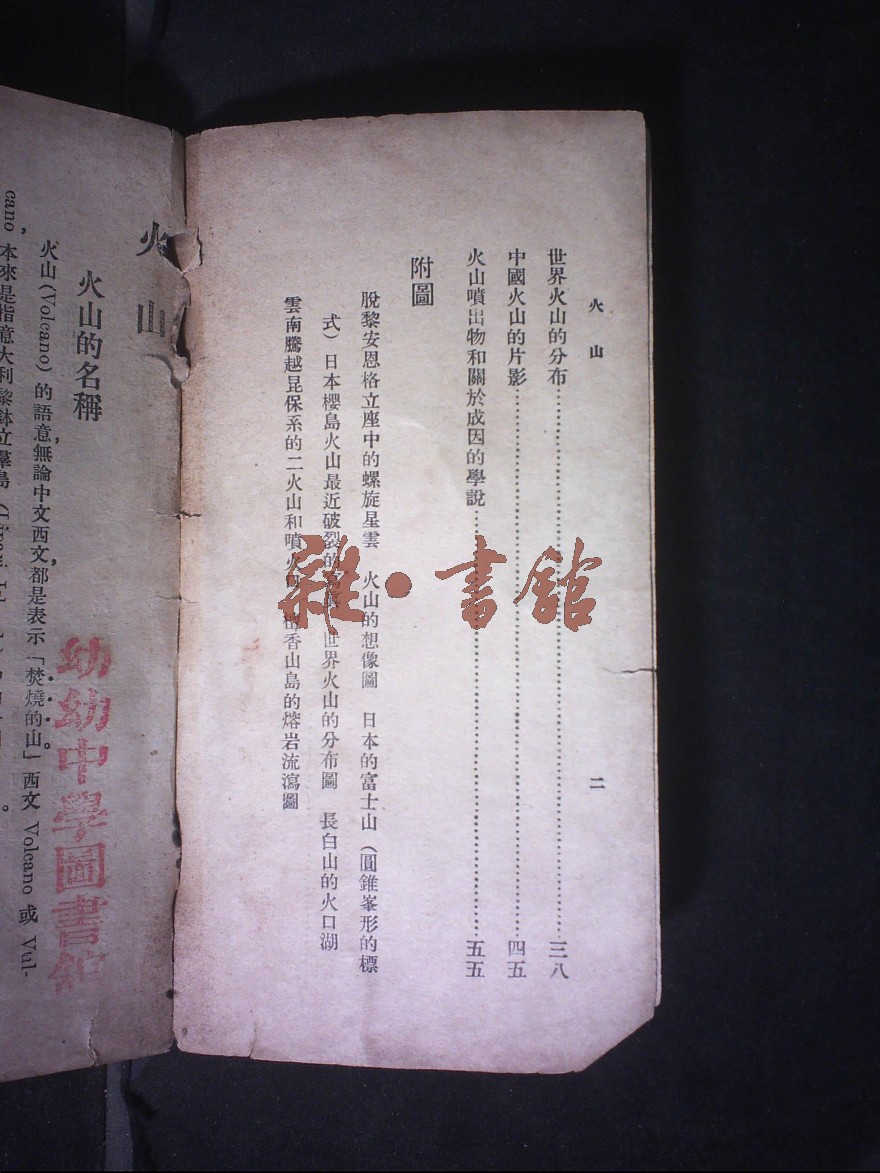 火山
二
世界火山的分布……三八
中國火山的片影……四五
火山噴出物和關於成因的學說……五五
附圖
脫黎安恩格立座中的螺旋星雲 火山的想像圖 日本的富士山（圓錐峯形的標
式）日本櫻島火山最近破裂的 世界火山的分布圖 長白山的火口湖
雲南騰越昆保系的二火山和噴火 香山島的熔岩流瀉圖
雜·書館
火山
火山的名稱
火山(Volcano)的語意，無論中文西文，都是表示「焚燒的山」。西文 Volcano 或 Vul-
cano，本來是指意大利黎鉢立羣島
幼幼中學圖書館